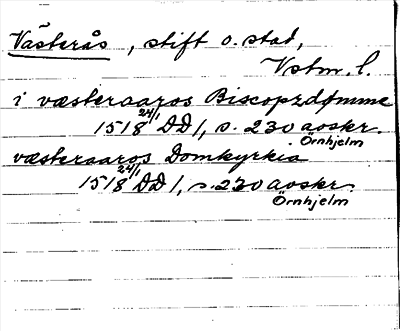 Västerås, stift o. stad,
Vstm. l.
i væsteraaros Biscopzdømme
1518 24/1 DD 1, s. 230 avskr.
Örnhjelm
væsteraaros Domkyrkia
1518 24/1 DD 1, s. 230 avskr.
Örnhjelm